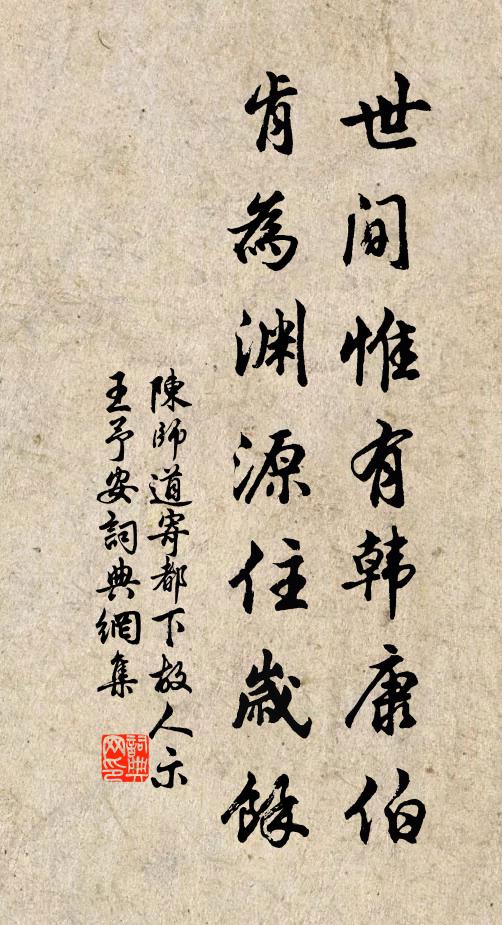 世间惟有韩康伯
肯為渊源住歲餘
陳師道寄都下故人示
王予安詞典網集
詞典
网印